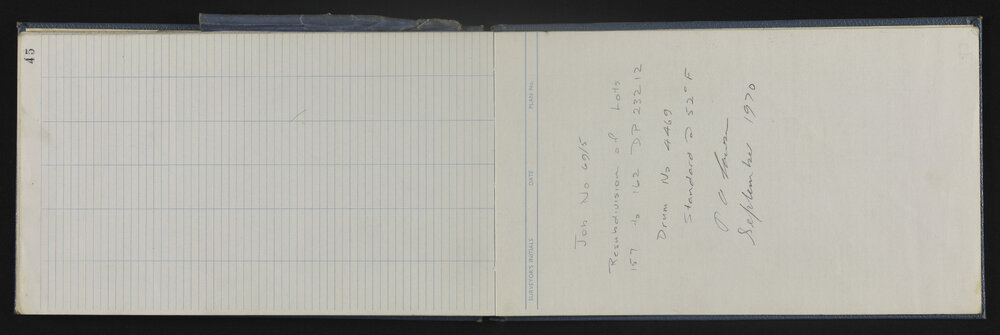 45
SURVEYOR'S INITIALS DATE PLAN No.
Job No 69/5
Resubdivision of Lots
157 to 162 DP 23212
Drum No 4469
Standard @ 52° F
P A
September 1970